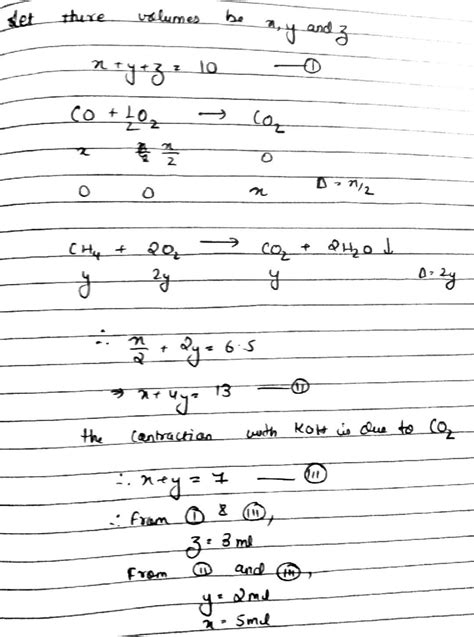 Let there volumes be x, y and z
x + y + z = 10 —— Ⓘ
CO + 1/2 O₂ → CO₂
x x/2 0
0 0 x Δ = x/2
CH₄ + 2O₂ → CO₂ + 2H₂O ↓
y 2y y Δ = 2y
∴ x/2 + 2y = 6.5
⇒ x + 4y = 13 —— Ⓘⓘ
the contraction with KOH is due to CO₂
∴ x + y = 7 —— (III)
∴ From (I) & (III),
z = 3 ml
From (II) and (III),
y = 2 ml
x = 5 ml